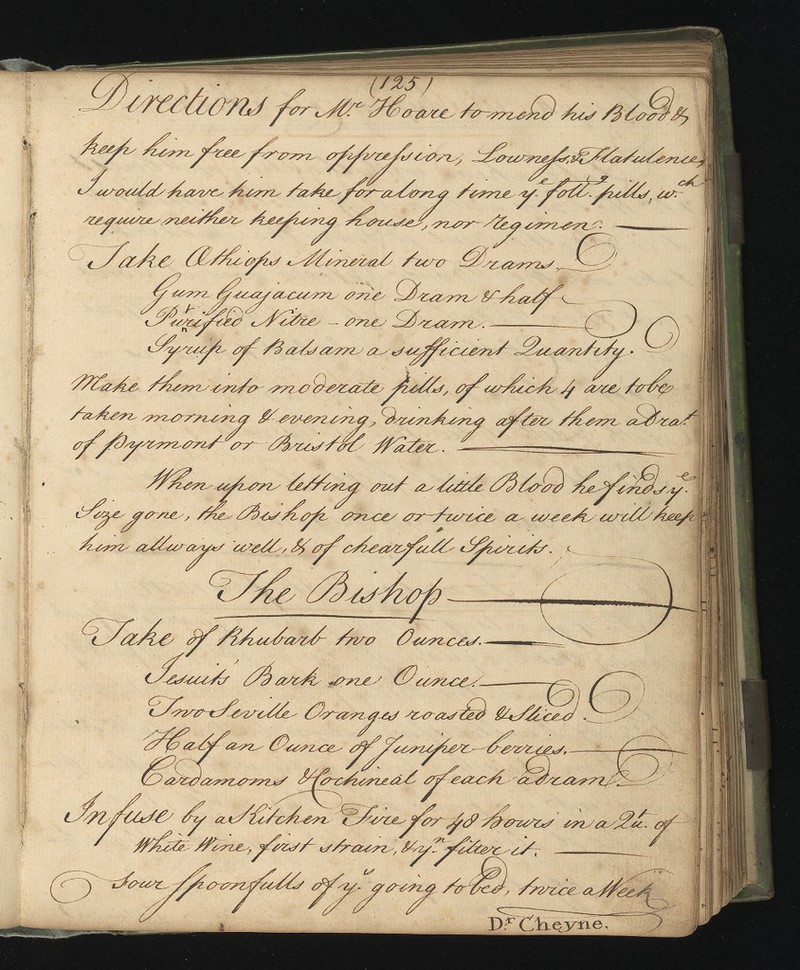 (125)
Directions for Mr. Hoare to mend his Blood &
keep him free from oppression, Lowness, & Flatulence,
I would have him take for a long time ye. foll.g pills, wch.
require neither keeping house, nor regimen.
Take Æthiops Mineral two Drams.
Gum Guajacum one Dram & half
Purified Nitre - one Dram.
Syrup of Balsam a sufficient Quantity.
Make them into moderate pills, of which 4 are to be
taken morning & evening, drinking after them a Drat.
of Pyrmont or Bristol Water.
When upon letting out a little Blood he finds ye.
Size gone, the Bishop once or twice a week will keep
him allways well, & of chearfull Spirits.
The Bishop
Take of Rhubarb two Ounces.
Jesuits' Bark one Ounce.
Two Seville Oranges roasted & Sliced.
Half an Ounce of Juniper-berries.
Cardamoms & Cochineal of each a dram.
Infuse by a Kitchen Fire for 48 hours in a Qut. of
White Wine, first strain, & yn. filter it.
Four Spoonfulls of ys. going to bed, twice a Week
Dr. Cheyne.